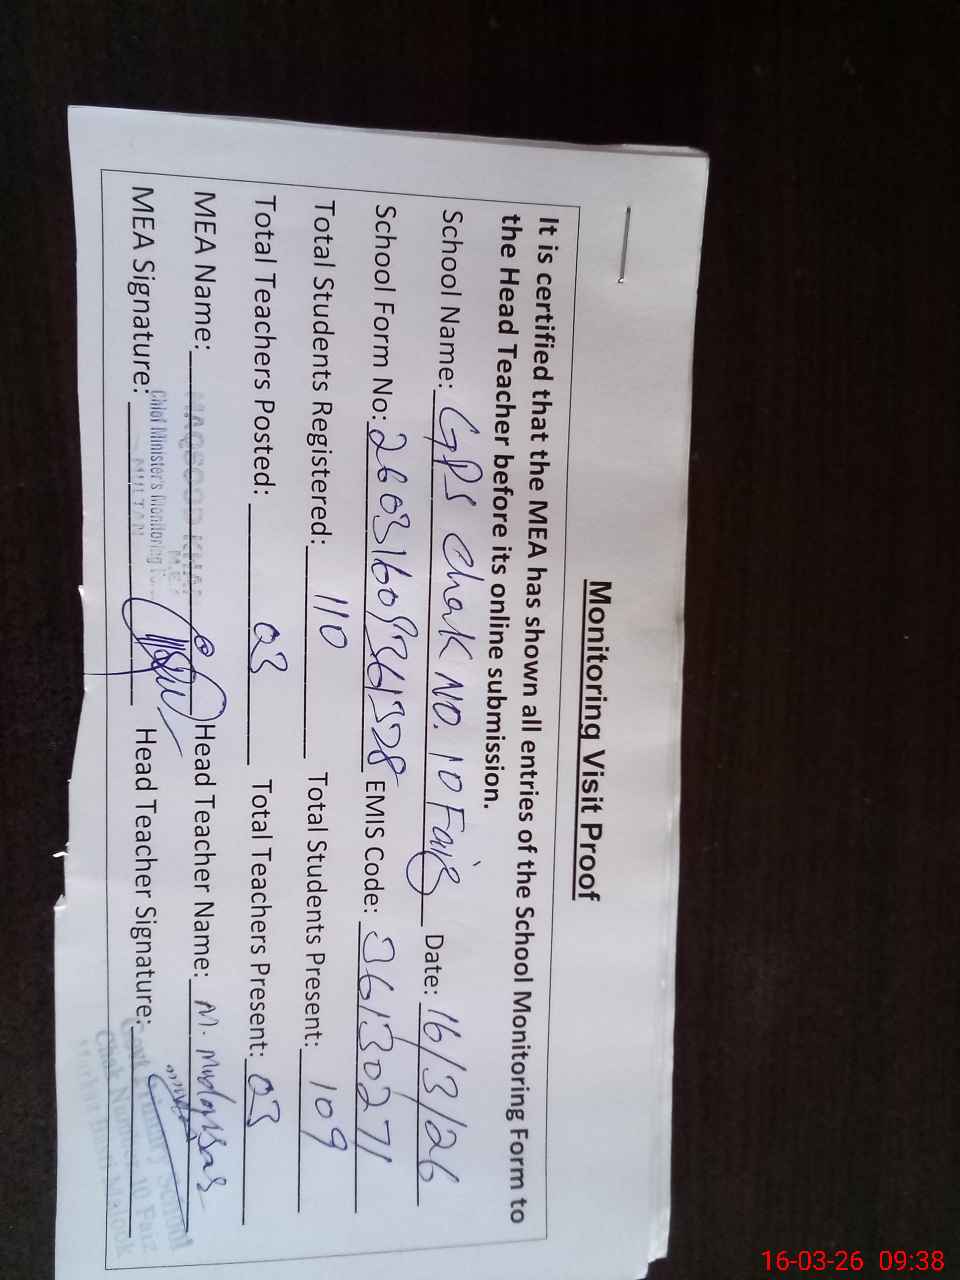 Monitoring Visit Proof
It is certified that the MEA has shown all entries of the School Monitoring Form to
the Head Teacher before its online submission.
School Name: GPS Chak NO. 10 Faiz Date: 16/3/26
School Form No: EMIS Code: 36130271
Total Students Registered: 110 Total Students Present: 109
Total Teachers Posted: 03 Total Teachers Present: 03
MEA Name: MAQSOOD KHAN Head Teacher Name: M. Mudassar
MEA Signature: Chief Minister's Monitoring Head Teacher Signature:
MULTAN
Govt. Primary School
Chak Number 10 Faiz
16-03-26 09:38